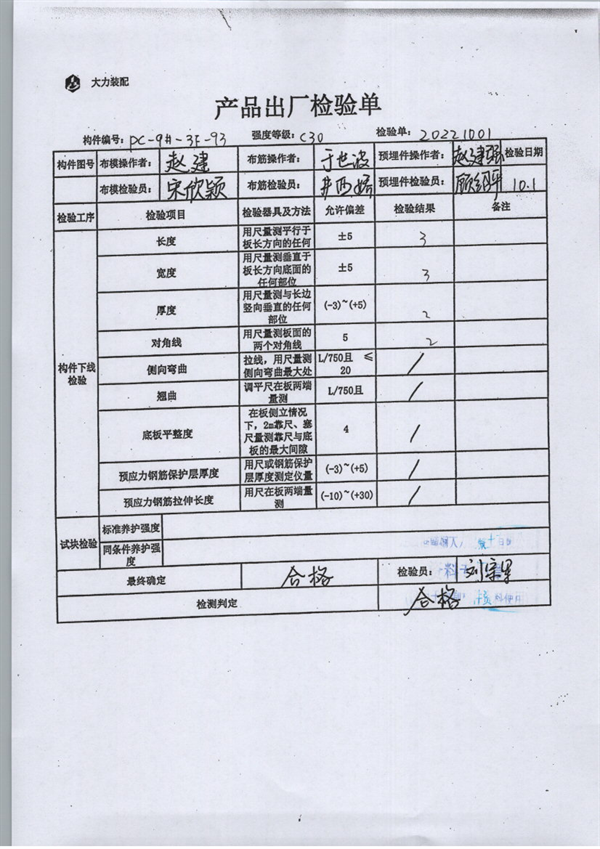 大力装配
产品出厂检验单
构件编号: PC-9#-3F-93 强度等级: C30 检验单: 20221001
构件图号 布模操作者: 赵建 布筋操作者: 于世波 预埋件操作者: 赵建强 检验日期
布模检验员: 宋欣颖 布筋检验员: 预埋件检验员: 10.1
检验工序 检验项目 检验器具及方法 允许偏差 检验结果 备注
构件下线检验
长度 用尺量测平行于板长方向的任何 ±5 3
宽度 用尺量测垂直于板长方向底面的任何部位 ±5 3
厚度 用尺量测与长边竖向垂直的任何部位 (-3)~(+5) 2
对角线 用尺量测板面的两个对角线 5 2
侧向弯曲 拉线，用尺量测侧向弯曲最大处 L/750且 ≤20 /
翘曲 调平尺在板两端量测 L/750且 /
底板平整度 在板侧立情况下，2m靠尺、塞尺量测靠尺与底板的最大间隙 4 /
预应力钢筋保护层厚度 用尺或钢筋保护层厚度测定仪量 (-3)~(+5) /
预应力钢筋拉伸长度 用尺在板两端量测 (-10)~(+30) /
试块检验 标准养护强度
同条件养护强度
最终确定 合格 检验员:
检测判定 合格